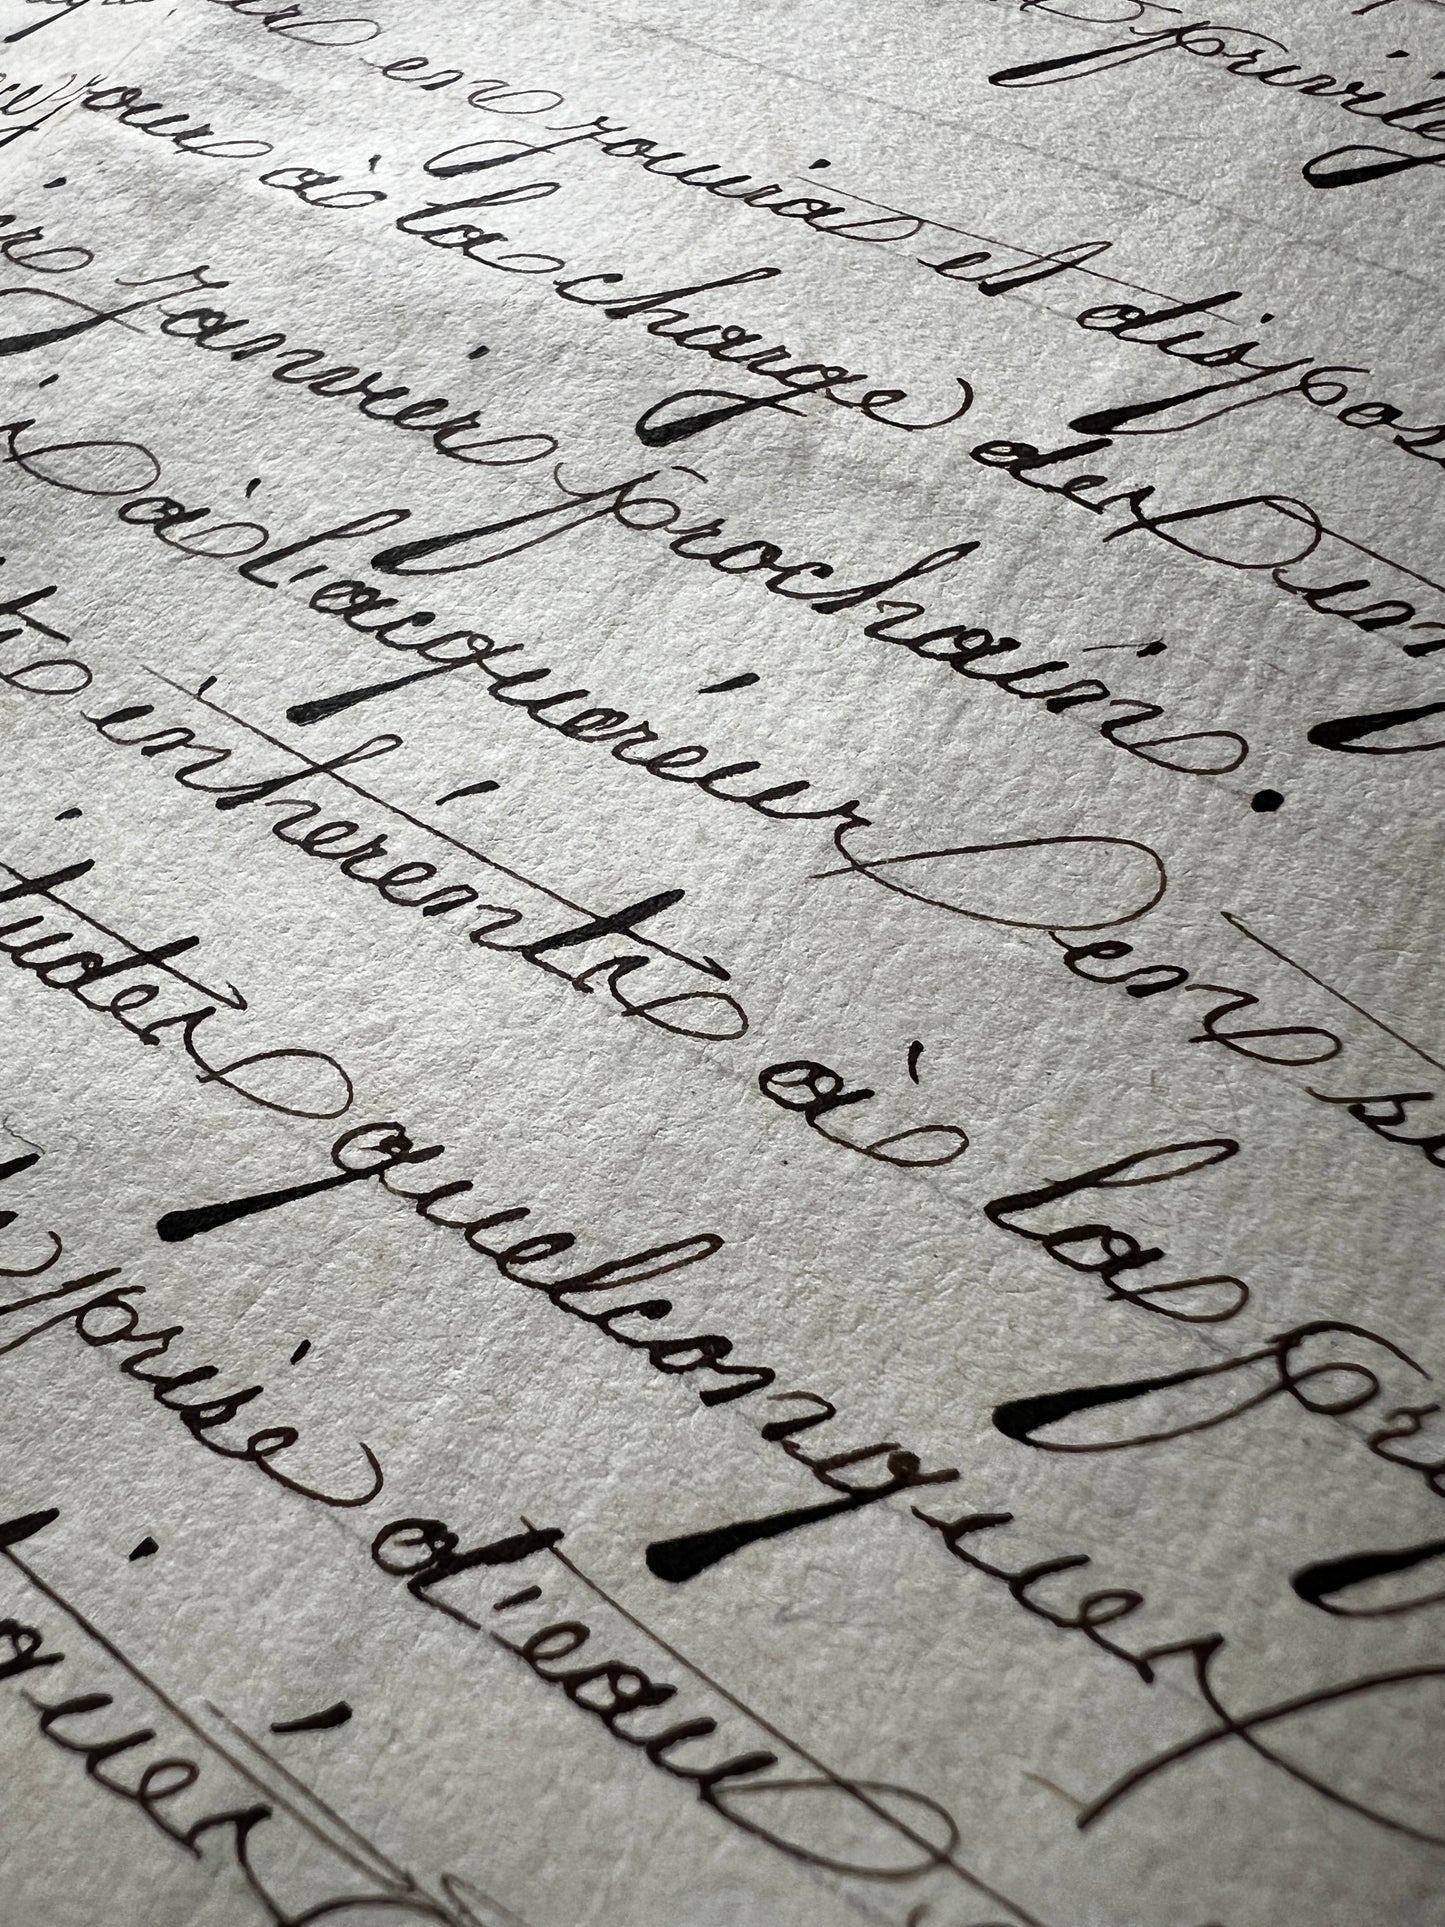 privilég
en jouira et dispos
jour à la charge des
janvier prochain.
à l'acquéreur en s
inhérents à la pr
tudes quelconques
prise d'eau